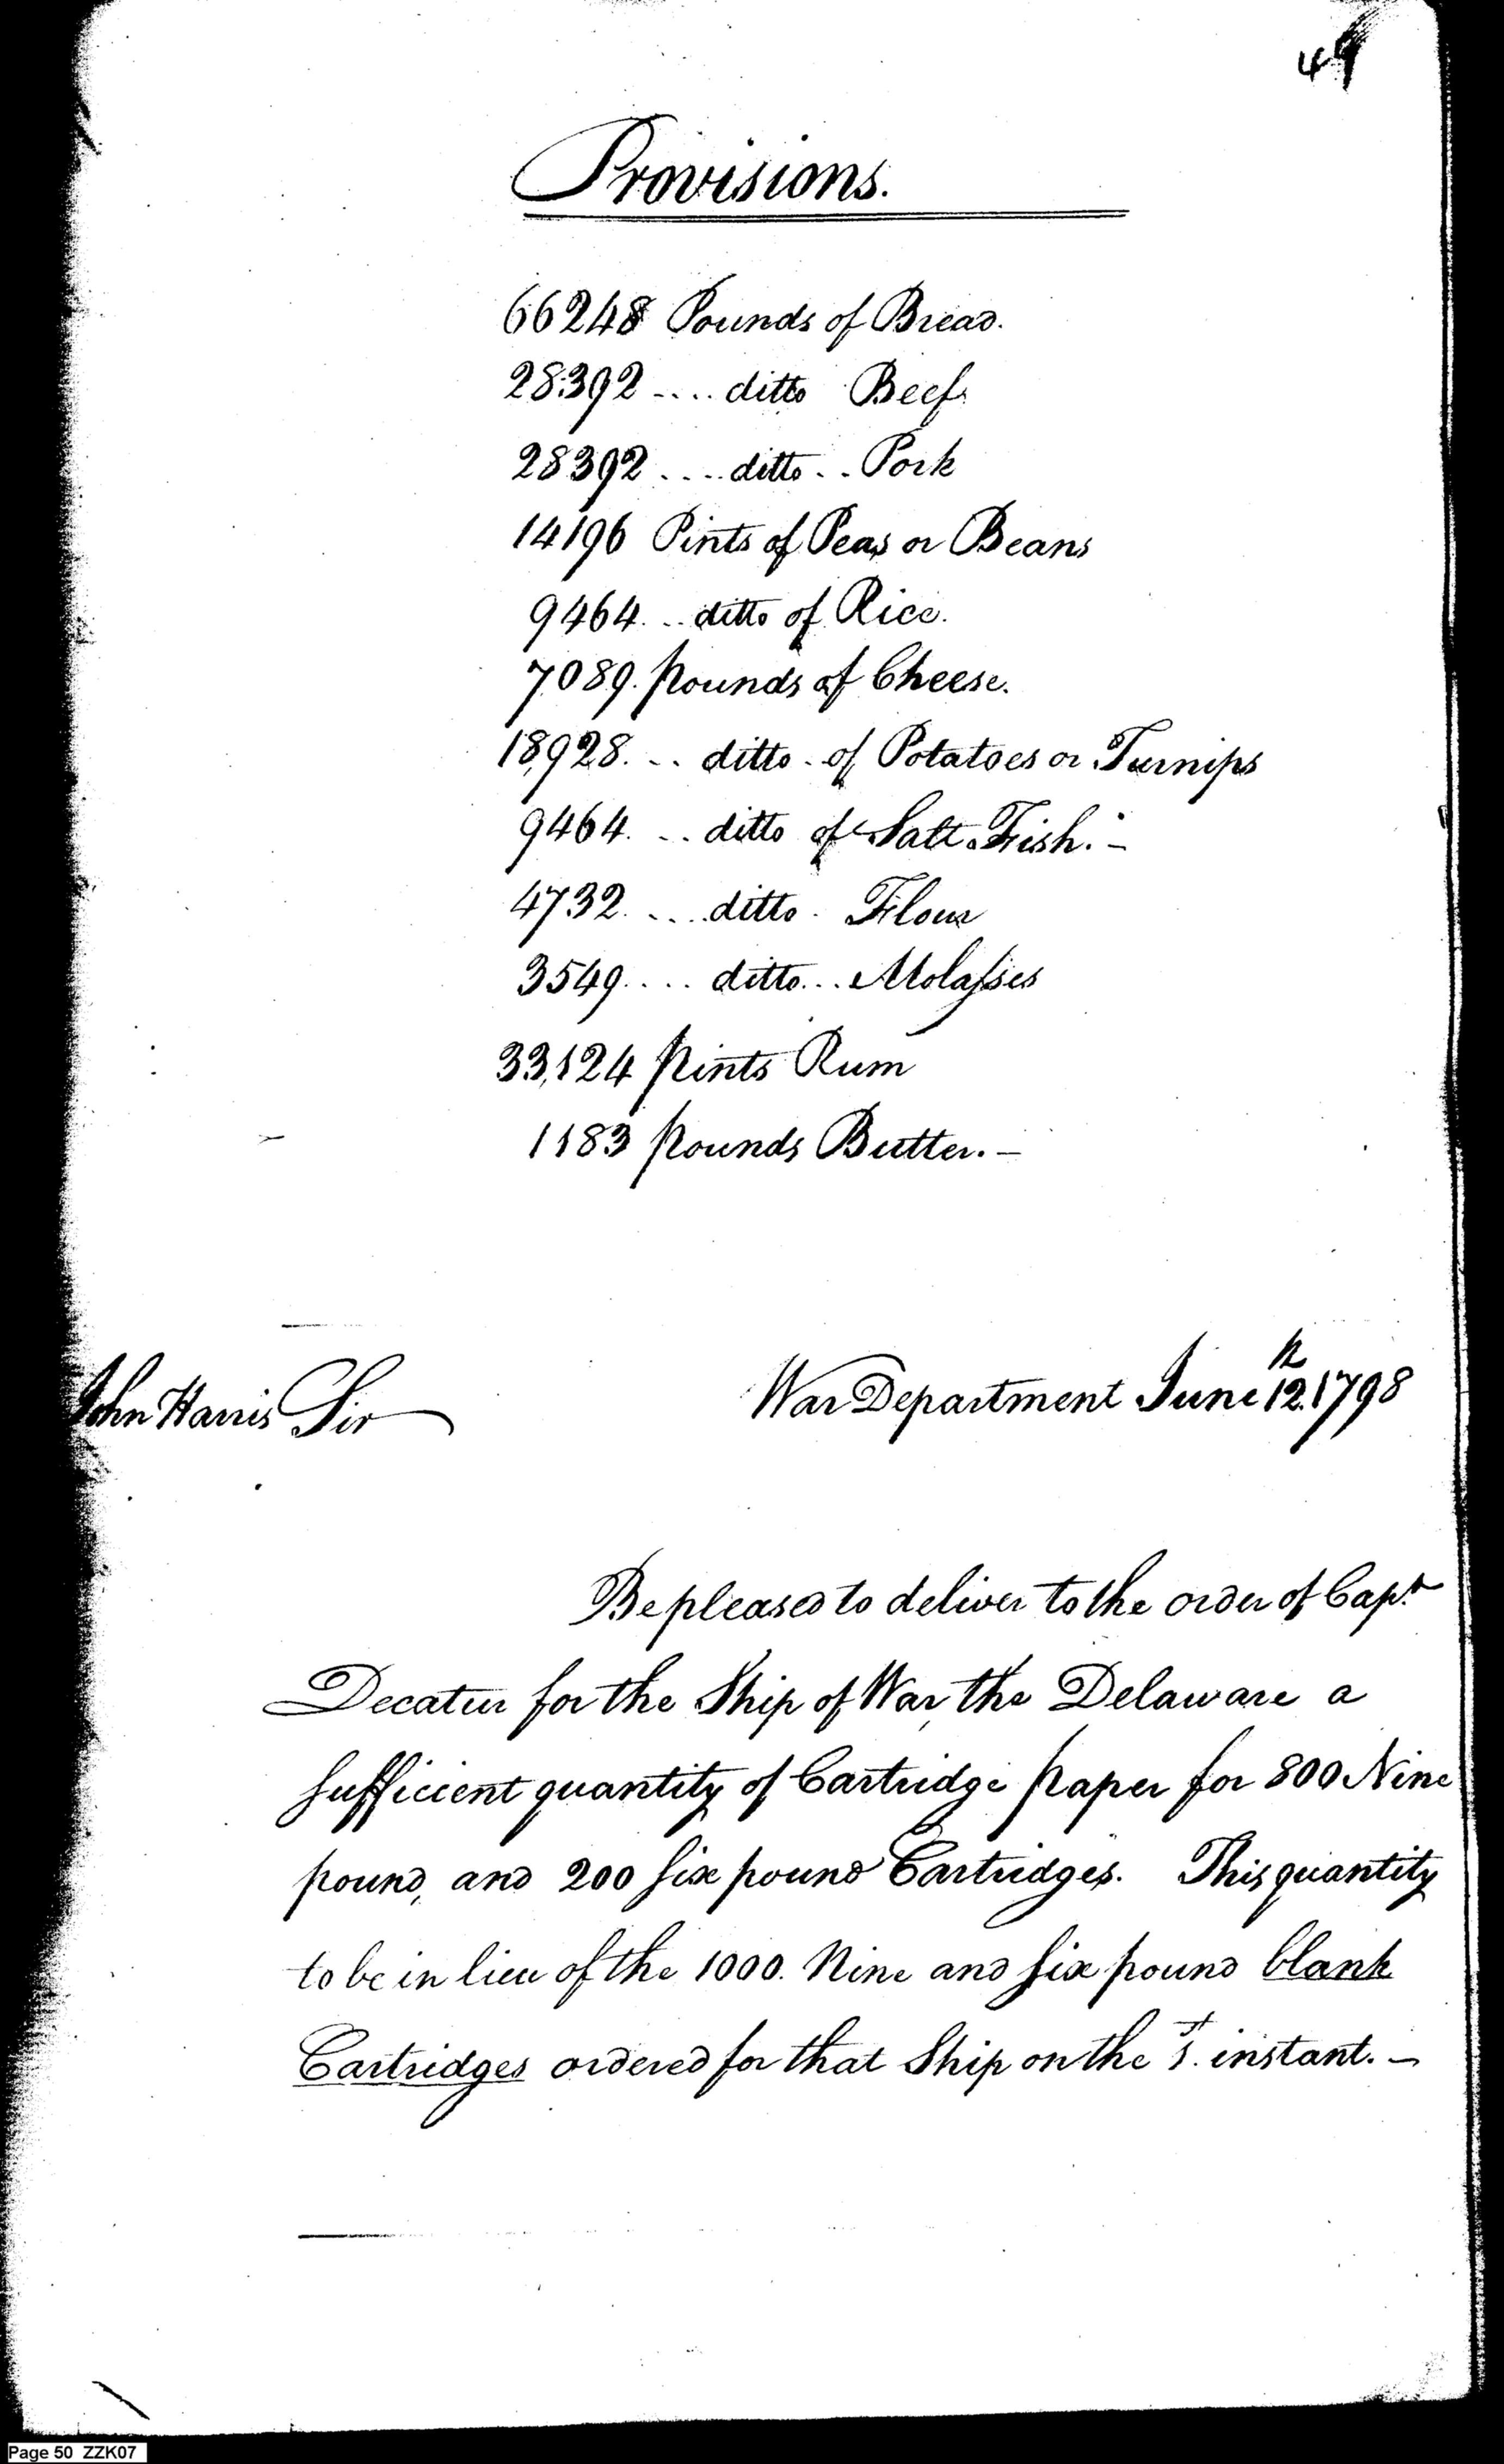 49
Provisions.
66248 Pounds of Bread.
28392 .... ditto Beef.
28392 .... ditto .. Pork
14196 Pints of Peas or Beans
9464. .. ditto of Rice.
7089. pounds of Cheese.
18,928. .. ditto - of Potatoes or Turnips
9464. .. ditto of Salt Fish. -
4732. ... ditto. Flour
3549. ... ditto... Molasses
33,124 pints Rum
1183 pounds Butter. -
John Harris Sir
War Department June 12th 1798
Be pleased to deliver to the order of Capt
Decatur for the Ship of War, the Delaware a
sufficient quantity of Cartridge paper for 800 Nine
pound, and 200 six pound Cartridges. This quantity
to be in lieu of the 1000. Nine and six pound blank
Cartridges ordered for that Ship on the 1st. instant. -
Page 50 ZZK07